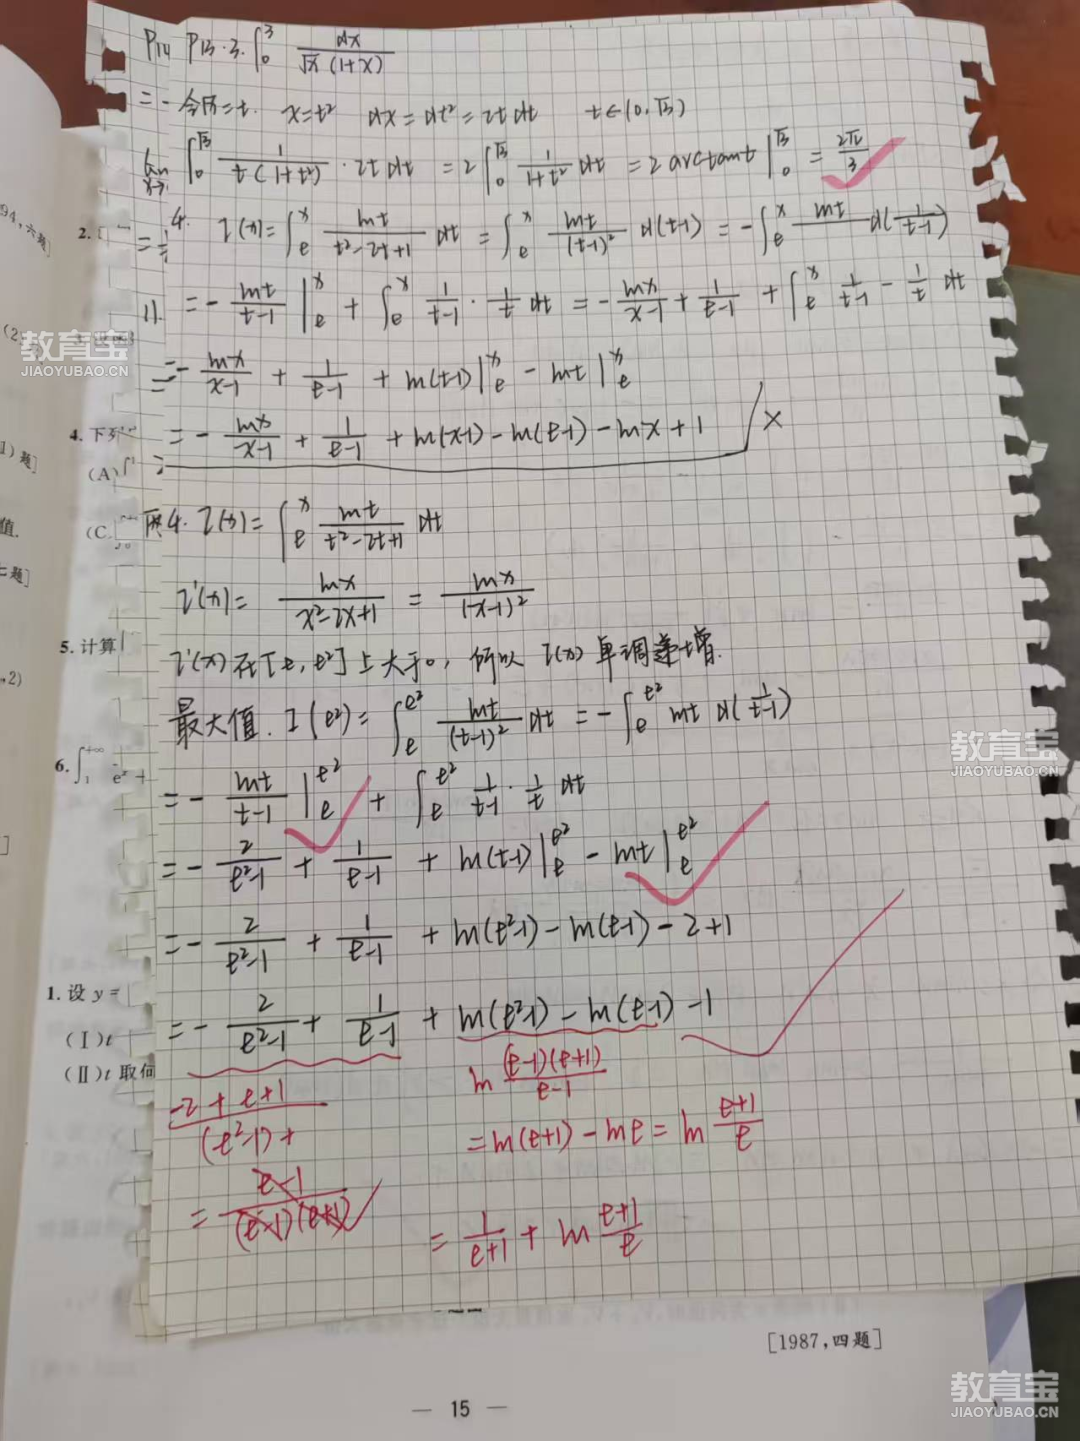 P14 P13·3. ∫₀³ dx / (√x (1+x))
= 令√x=t. x=t² dx=dt²=2tdt t∈(0,√3)
∫₀^√3 1/(t(1+t²)) · 2tdt = 2∫₀^√3 1/(1+t²) dt = 2 arctant |₀^√3 = 2π/3
4. I(x)=∫ₑˣ lnt/(t²-2t+1) dt = ∫ₑˣ lnt/(t-1)² d(t-1) = -∫ₑˣ lnt d(1/(t-1))
11. = - lnt/(t-1) |ₑˣ + ∫ₑˣ 1/(t-1) · 1/t dt = - lnx/(x-1) + 1/(e-1) + ∫ₑˣ 1/(t-1) - 1/t dt
= - lnx/(x-1) + 1/(e-1) + ln(t-1)|ₑˣ - lnt|ₑˣ
= - lnx/(x-1) + 1/(e-1) + ln(x-1) - ln(e-1) - lnx + 1 ×
4. I(x)= ∫ₑˣ lnt/(t²-2t+1) dt
I'(x)= lnx/(x²-2x+1) = lnx/(x-1)²
I'(x)在[e,e²]上大于0, 所以 I(x)单调递增.
最大值. I(e²)= ∫ₑ^e² lnt/(t-1)² dt = -∫ₑ^e² lnt d(1/(t-1))
= - lnt/(t-1) |ₑ^e² + ∫ₑ^e² 1/(t-1) · 1/t dt
= - 2/(e²-1) + 1/(e-1) + ln(t-1)|ₑ^e² - lnt|ₑ^e²
= - 2/(e²-1) + 1/(e-1) + ln(e²-1) - ln(e-1) - 2+1
= - 2/(e²-1) + 1/(e-1) + ln(e²-1) - ln(e-1) - 1
-2+e+1 / (e²-1)+ ln (e-1)(e+1)/(e-1)
= ln(e+1) - lne = ln (e+1)/e
= (e-1)/((e-1)(e+1))
= 1/(e+1) + ln (e+1)/e
94,六题]
2.
4. 下列
(A)
(C.
5. 计算
6. ∫₁^+∞
1. 设 y =
(Ⅰ)t
(Ⅱ)t 取何
[1987,四题]
— 15 —
教育宝
JIAOYUBAO.CN
教育宝
JIAOYUBAO.CN
教育宝
JIAOYUBAO.CN